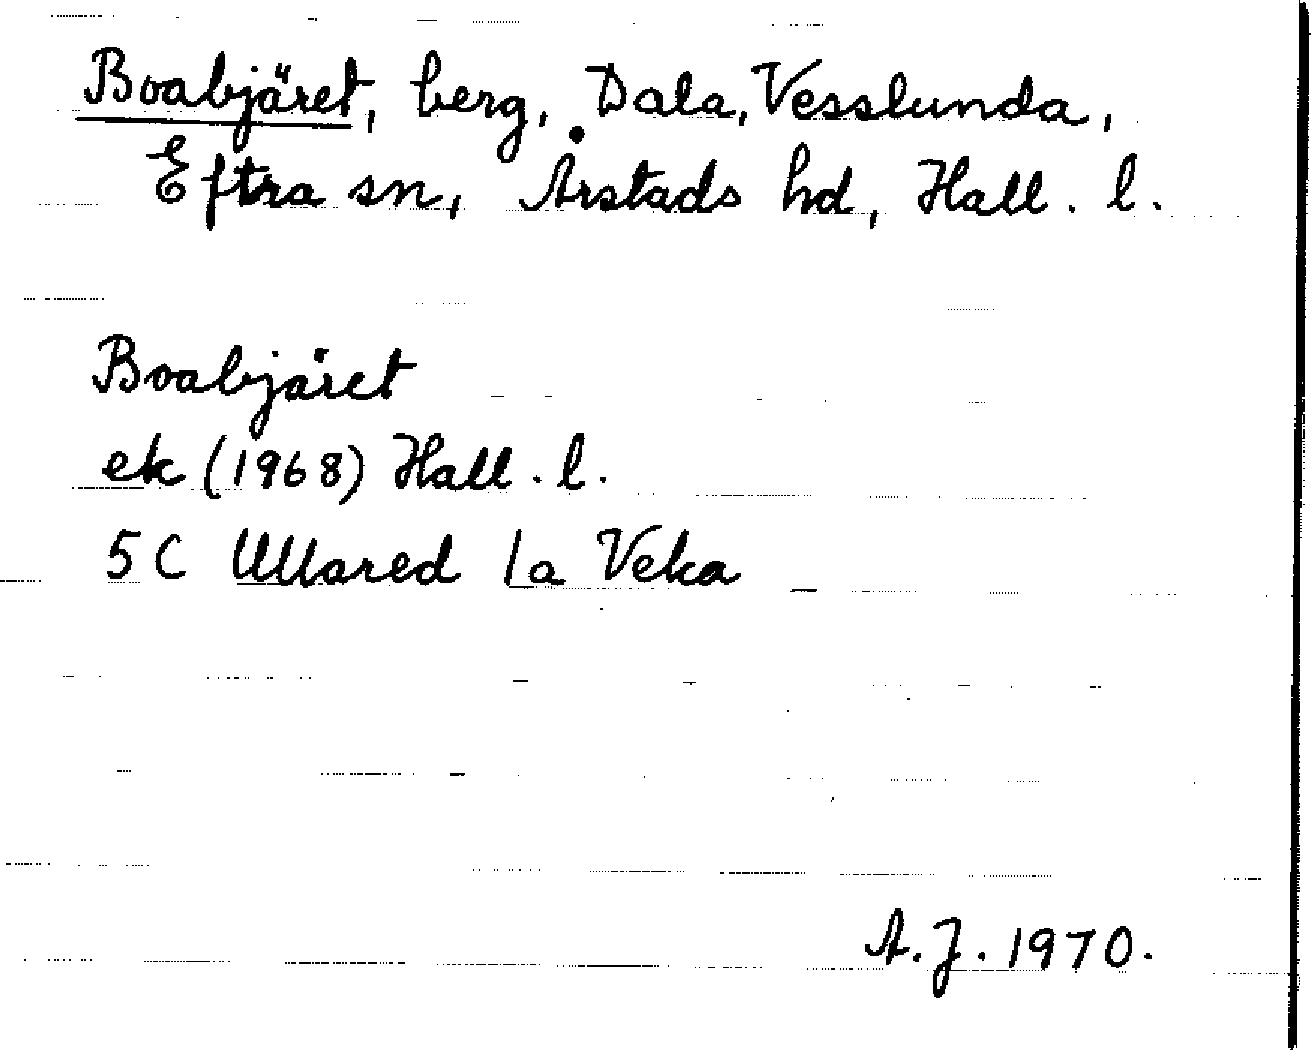 Boabjäret, berg, Dala, Vesslunda,
Eftra sn, Årstads hd, Hall. l.
Boabjäret
ek (1968) Hall. l.
5C Ullared 1a Veka
A.J. 1970.